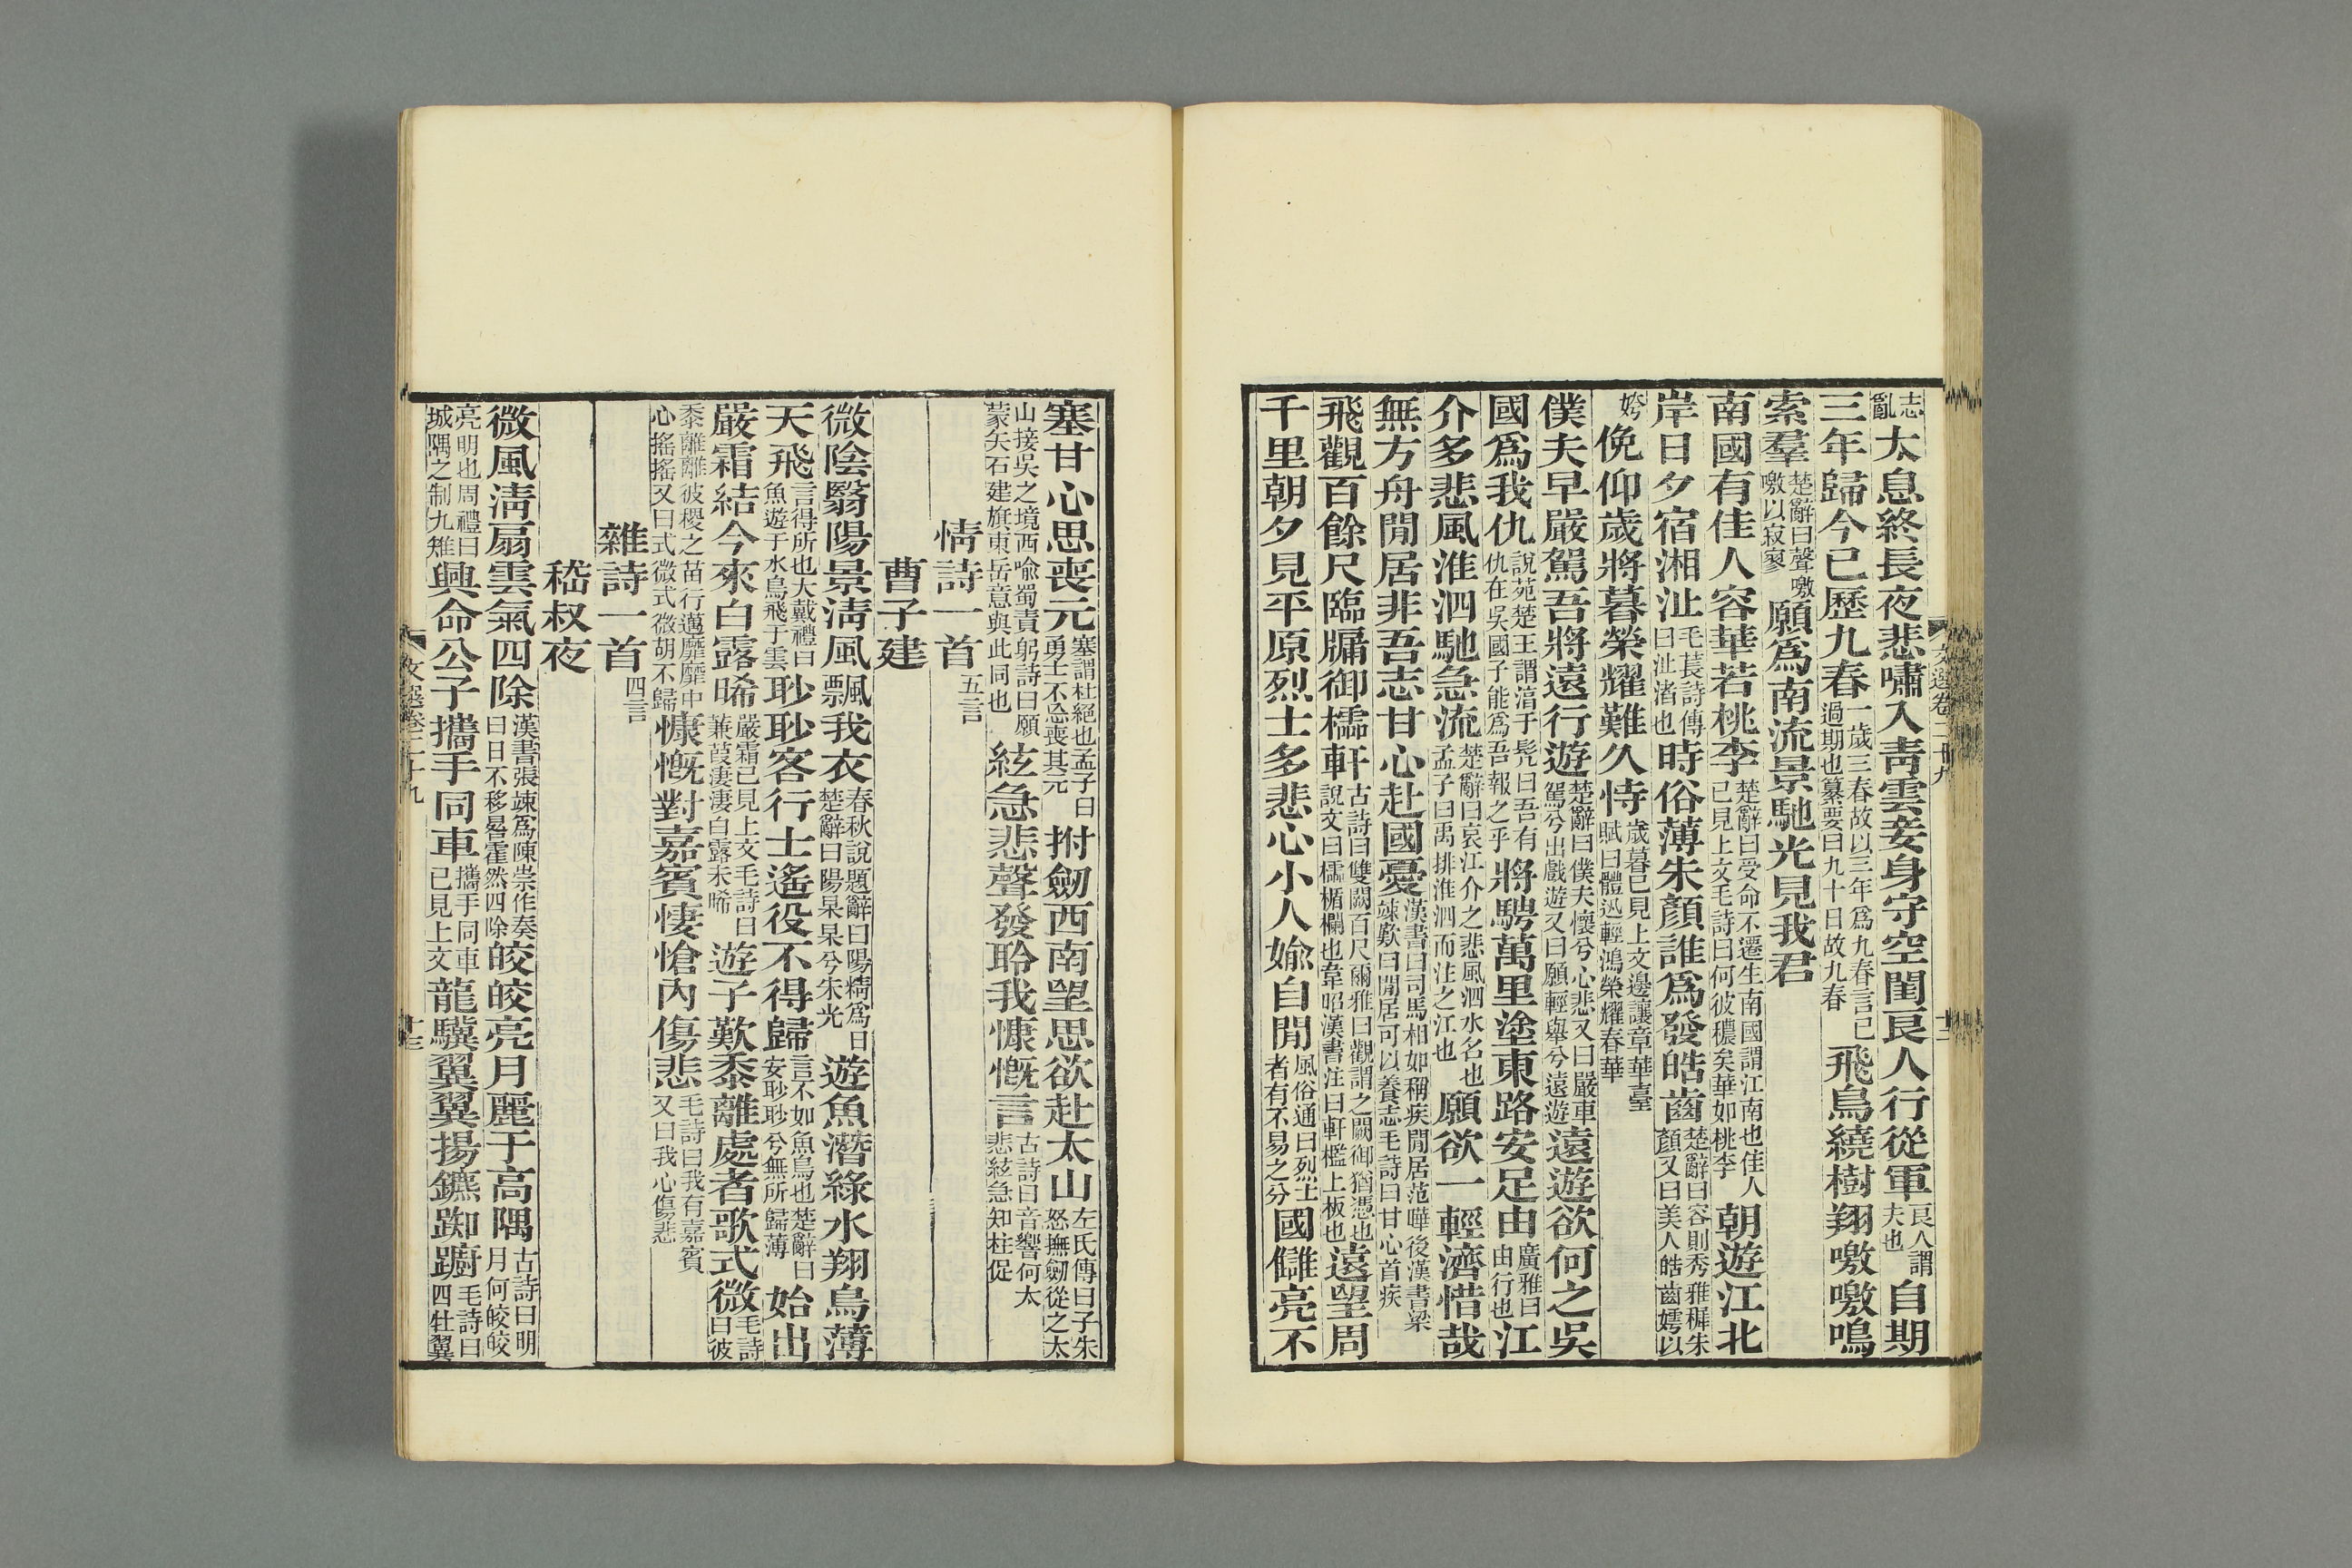 志亂太息終長夜悲嘯入青雲妾身守空閨良人行從軍良人謂夫也自期
三年歸今已歷九春一歲三春故以三年爲九春言已過期也纂要曰九十日故九春飛鳥繞樹翔噭噭鳴
索羣楚辭曰聲噭噭以寂寥願爲南流景馳光見我君
南國有佳人容華若桃李楚辭曰受命不遷生南國謂江南也佳人已見上文毛詩曰何彼穠矣華如桃李朝遊江北
岸日夕宿湘沚毛萇詩傳曰沚渚也時俗薄朱顏誰爲發皓齒楚辭曰容則秀雅稺朱顏又曰美人皓齒嫮以
姱俛仰歲將暮榮耀難久恃歲暮已見上文邊讓章華臺賦曰體迅輕鴻榮耀春華
僕夫早嚴駕吾將遠行遊楚辭曰僕夫懷兮心悲又曰嚴車駕兮出戲遊又曰願輕舉兮遠遊遠遊欲何之吳
國爲我仇說苑楚王謂淳于髠曰吾有仇在吳國子能爲吾報之乎將騁萬里塗東路安足由廣雅曰由行也江
介多悲風淮泗馳急流楚辭曰哀江介之悲風泗水名也孟子曰禹排淮泗而注之江也願欲一輕濟惜哉
無方舟閒居非吾志甘心赴國憂漢書曰司馬相如稱疾閒居范曄後漢書梁竦歎曰閒居可以養志毛詩曰甘心首疾
飛觀百餘尺臨牖御櫺軒古詩曰雙闕百尺爾雅曰觀謂之闕御猶憑也說文曰櫺楯欄也韋昭漢書注曰軒檻上板也遠望周
千里朝夕見平原烈士多悲心小人媮自閒風俗通曰烈士者有不易之分國讎亮不
塞甘心思喪元塞謂杜絕也孟子曰勇士不忘喪其元拊劒西南望思欲赴太山左氏傳曰子朱怒撫劒從之太
山接吳之境西喻蜀責躬詩曰願蒙矢石建旗東岳意與此同也絃急悲聲發聆我慷慨言古詩曰音響何太悲絃急知柱促
情詩一首五言
曹子建
微陰翳陽景清風飄我衣春秋說題辭曰陽精爲日楚辭曰陽杲杲兮朱光遊魚潛綠水翔鳥薄
天飛言得所也大戴禮曰魚遊于水鳥飛于雲眇眇客行士遙役不得歸言不如魚鳥也楚辭曰安眇眇兮無所歸薄始出
嚴霜結今來白露晞嚴霜已見上文毛詩曰蒹葭淒淒白露未晞遊子歎黍離處者歌式微毛詩曰彼
黍離離彼稷之苗行邁靡靡中心搖搖又曰式微式微胡不歸慷慨對嘉賓悽愴內傷悲毛詩曰我有嘉賓又曰我心傷悲
雜詩一首四言
嵇叔夜
微風清扇雲氣四除漢書張竦爲陳崇作奏曰日不移晷霍然四除皎皎亮月麗于高隅古詩曰明月何皎皎
亮明也周禮曰城隅之制九雉興命公子攜手同車攜手同車已見上文龍驥翼翼揚鑣踟躕毛詩曰四牡翼
文選卷二十九
十二
文選卷二十九
十三